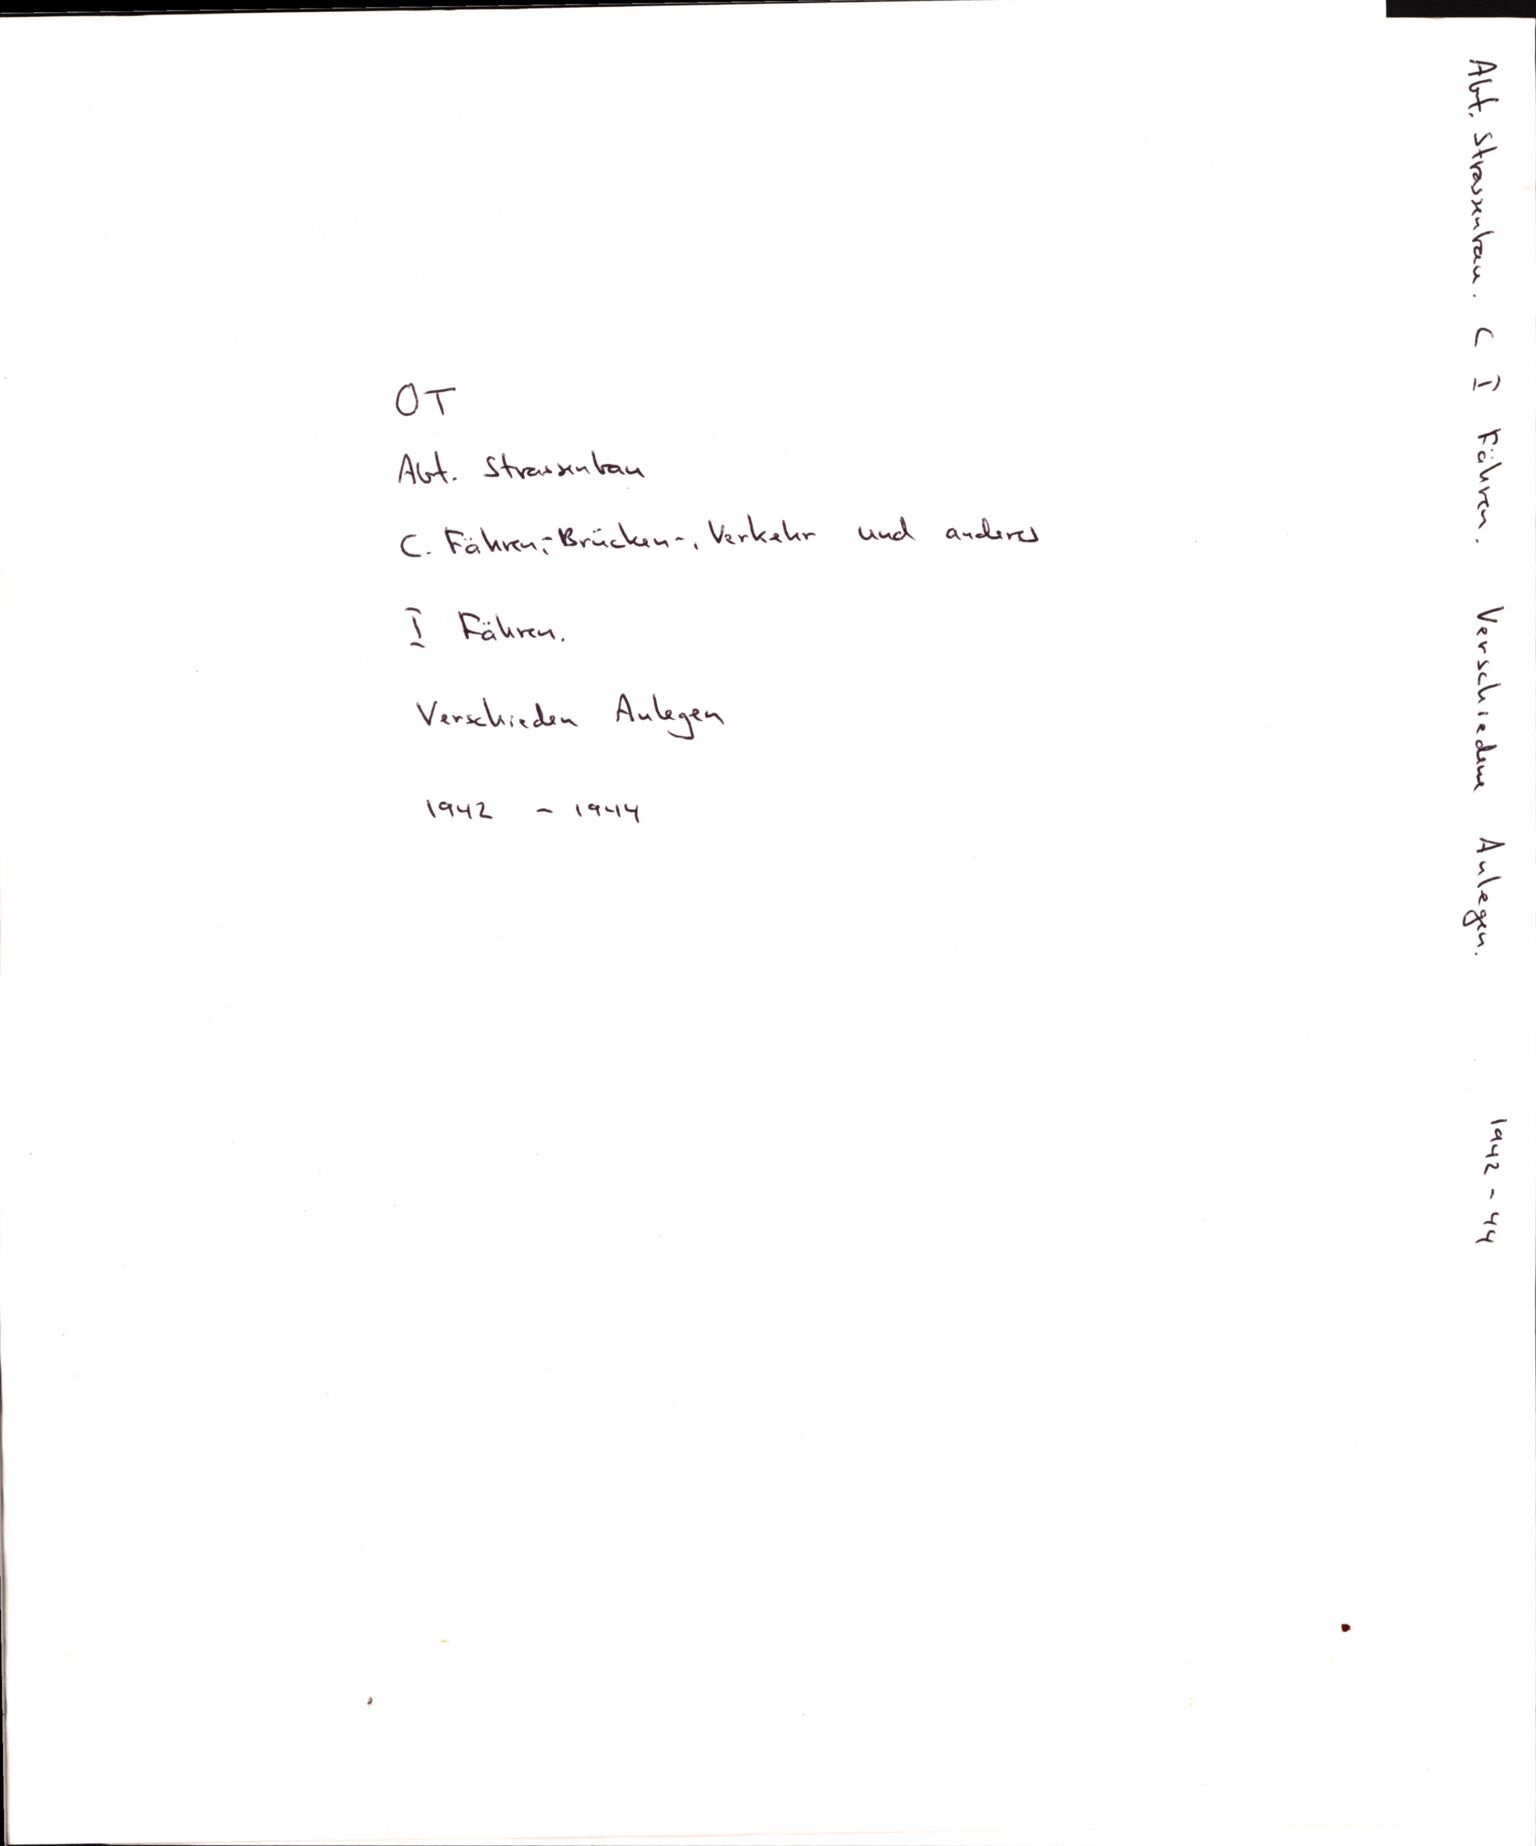 OT
Abt. Strassenbau
C. Fähren,- Brücken-, Verkehr und anderes
I Fähren.
Verschieden Anlegen
1942 - 1944
Abt. Strassenbau. C I Fähren. Verschiedene Anlegen. 1942 - 44